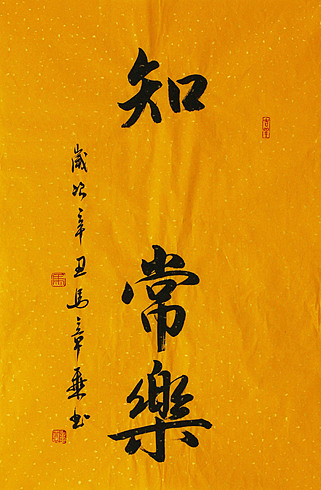 知常樂
歲次辛丑馬章乘书